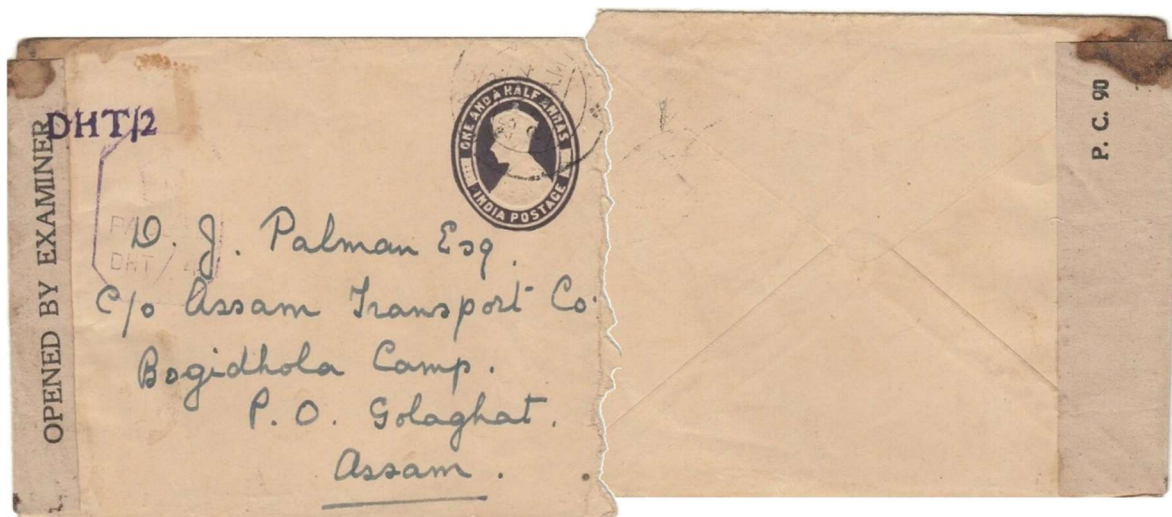 OPENED BY EXAMINER
DHT/2
ONE AND A HALF ANNAS
INDIA POSTAGE
DHT/
D. J. Palman Esq.
C/o Assam Transport Co.
Bogidhola Camp.
P. O. Golaghat.
Assam.
P. C. 90